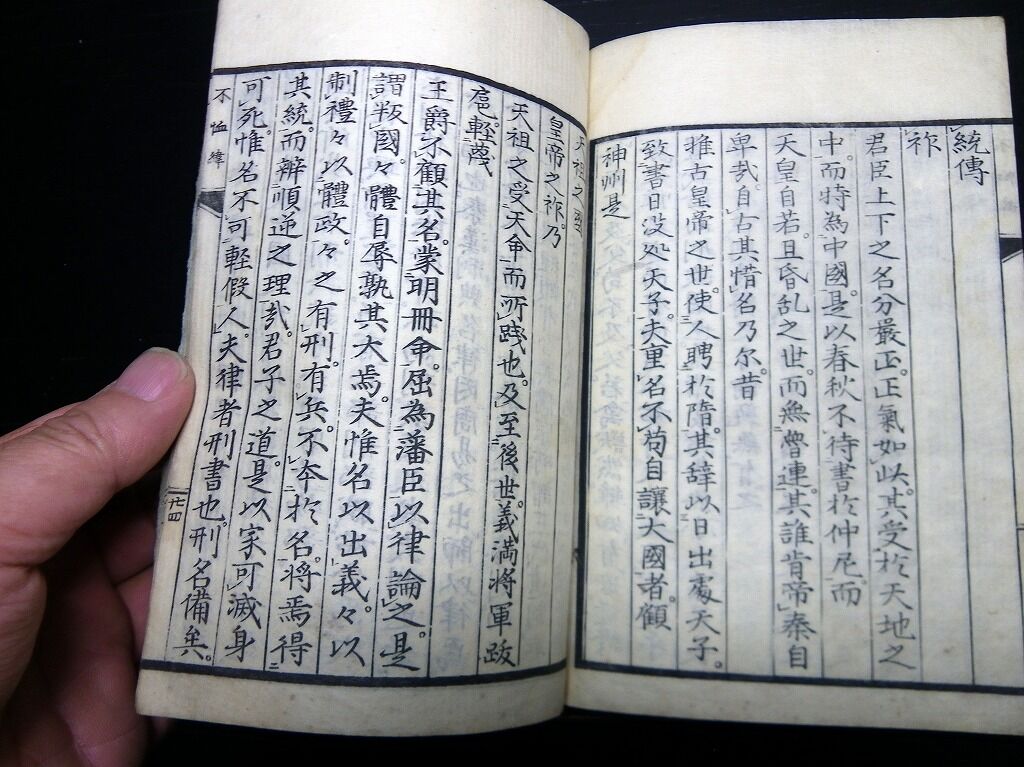 統傳
祚
君臣上下之名分嚴正。正氣如此。其受於天地之
中。而特為中國。是以春秋不待書於仲尼。而
天皇自若。且昏乱之世。而無魯連。其誰肯帝秦自
卑哉。自古其惜名乃尓。昔
推古皇帝之世。使人聘於隋。其辞以日出處天子。
致書日没処天子。夫里名不苟自讓大國者。顧
神州是
天祖之
皇帝之祚。乃
天祖之受天命而所践也。及至後世。義満将軍跋
扈。輕蔑
王爵不顧其名。蒙明冊命。屈為藩臣。以律論之。是
謂叛國。々體自辱孰其大焉。夫惟名以出義。々以
制禮。々以體政。々之有刑。有兵。不夲於名。将焉得
其統。而辨順逆之理哉。君子之道。是以家可滅身
可死。惟名不可輕假人。夫律者刑書也。刑名備矣。
不恤緯
廿四